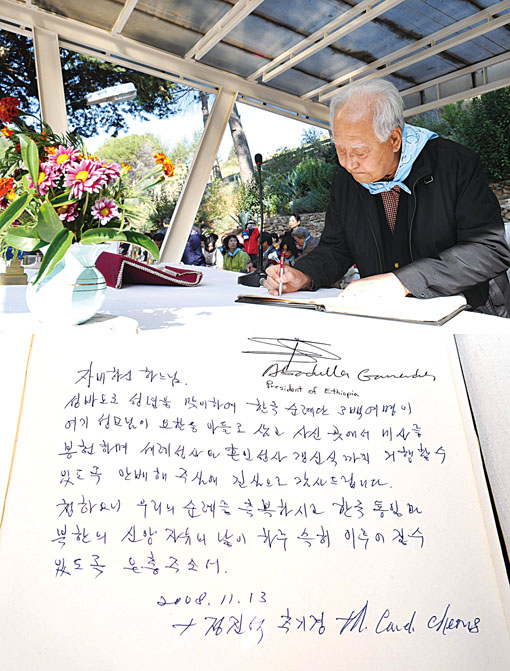 President of Ethiopia
자비하신 하느님.
성바오로 성년을 맞이하여 한국 순례단 3백여명이
여기 성모님이 요한을 아들로 삼고 사신 곳에서 미사를
봉헌하며 세례성사와 혼인성사 갱신식까지 거행할 수
있도록 안배해 주심에 진심으로 감사드립니다.
청하오니 우리의 순례를 축복하시고 한국 통일과
북한의 신앙 자유의 날이 하루 속히 이루어 질 수
있도록 은총 주소서.
2008. 11. 13
+ 정진석 추기경 Card. Cheong